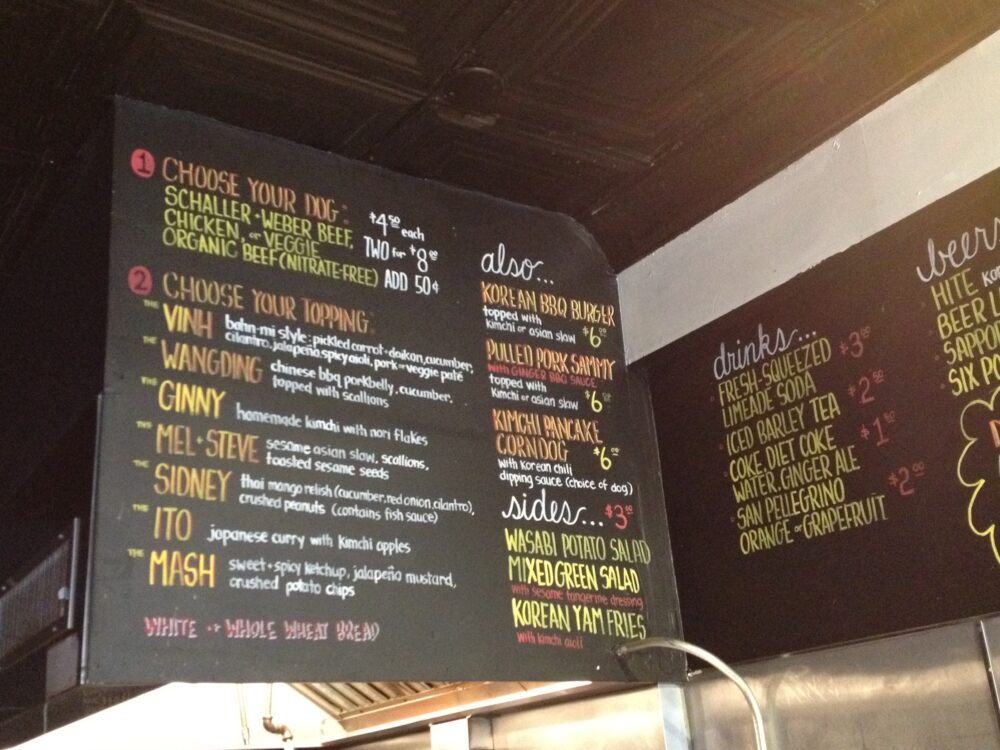 1 CHOOSE YOUR DOG:
SCHALLER + WEBER BEEF, $4.50 each
CHICKEN, or VEGGIE TWO for $8.00
ORGANIC BEEF (NITRATE-FREE) ADD 50¢
2 CHOOSE YOUR TOPPING:
THE VINH bahn-mi style: pickled carrot + daikon, cucumber,
cilantro, jalapeña, spicy aioli, pork or veggie paté
THE WANGDING chinese bbq porkbelly, cucumber,
topped with scallions
THE GINNY homemade kimchi with nori flakes
THE MEL + STEVE sesame asian slaw, scallions,
toasted sesame seeds
THE SIDNEY thai mango relish (cucumber, red onion, cilantro),
crushed peanuts (contains fish sauce)
THE ITO japanese curry with kimchi apples
THE MASH sweet + spicy ketchup, jalapeña mustard,
crushed potato chips
WHITE or WHOLE WHEAT BREAD
also...
KOREAN BBQ BURGER
topped with
kimchi or asian slaw $6.00
PULLED PORK SAMMY
with GINGER BBQ SAUCE
topped with
kimchi or asian slaw $6
KIMCHI PANCAKE
CORNDOG $6.00
with korean chili
dipping sauce (choice of dog)
sides... $3.00
WASABI POTATO SALAD
MIXED GREEN SALAD
with sesame tangerine dressing
KOREAN YAM FRIES
with kimchi aioli
drinks...
FRESH-SQUEEZED $3.00
LIMEADE SODA
ICED BARLEY TEA $2.50
COKE, DIET COKE $1.50
WATER, GINGER ALE
SAN PELLEGRINO $2.00
ORANGE or GRAPEFRUIT
beers
HITE
BEER
SAPPO
SIX